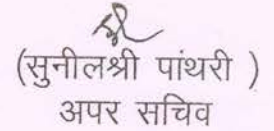 (सुनीलश्री पांथरी )
अपर सचिव